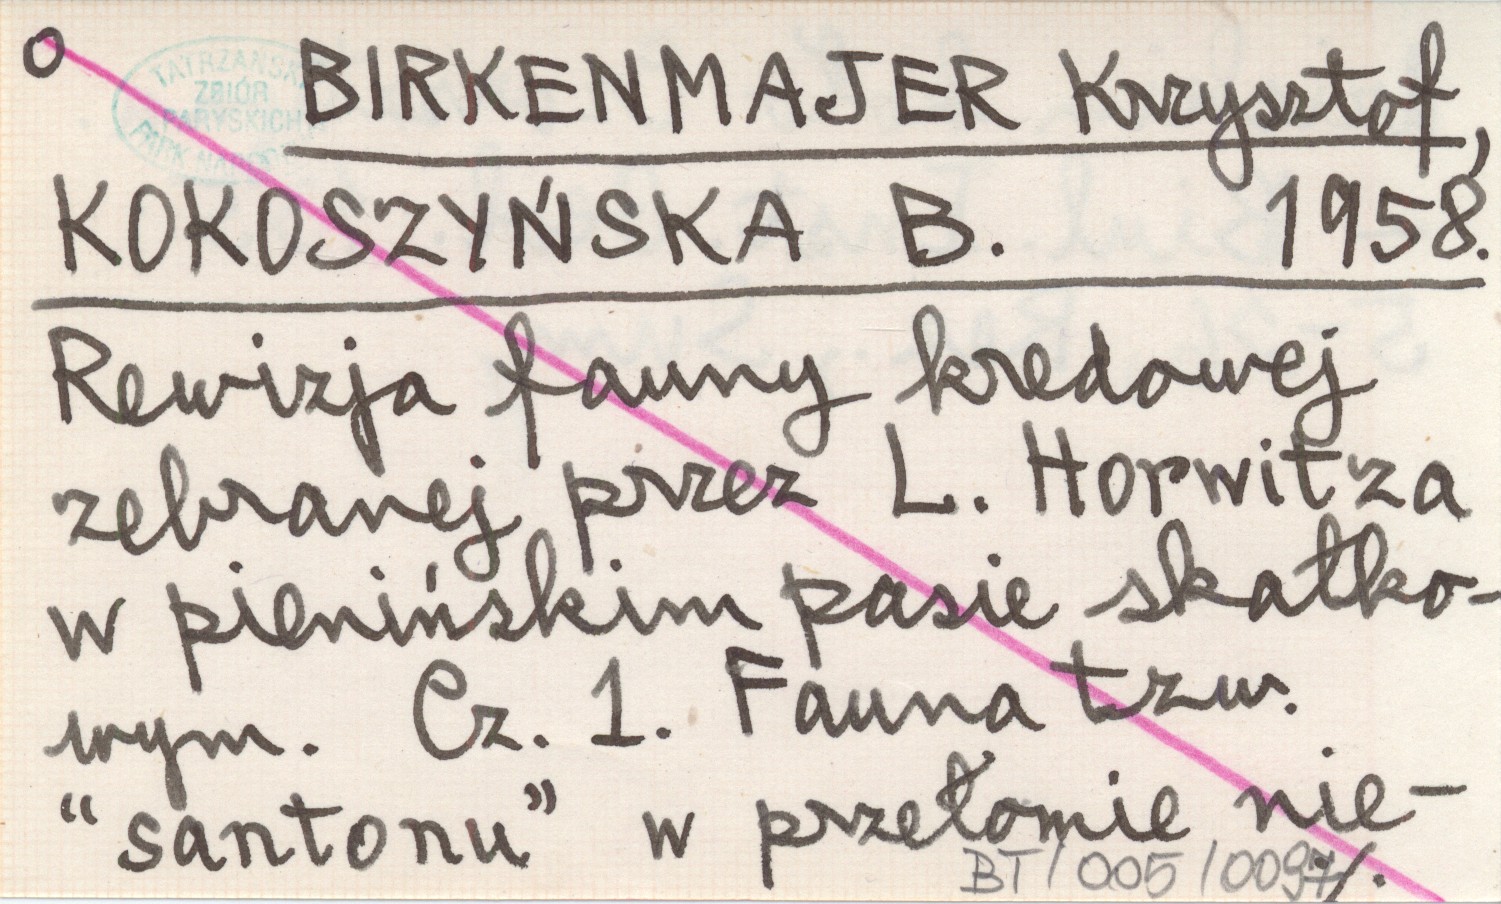 o BIRKENMAJER Krzysztof,
TATRZAŃSKI
ZBIÓR
PARYSKICH
PARK NARODO
KOKOSZYŃSKA B. 1958.
Rewizja fauny kredowej
zebranej przez L. Horwitza
w pienińskim pasie skałko-
wym. Cz. 1. Fauna tzw.
“santonu” w przełomie nie-
BT/005/0097/.